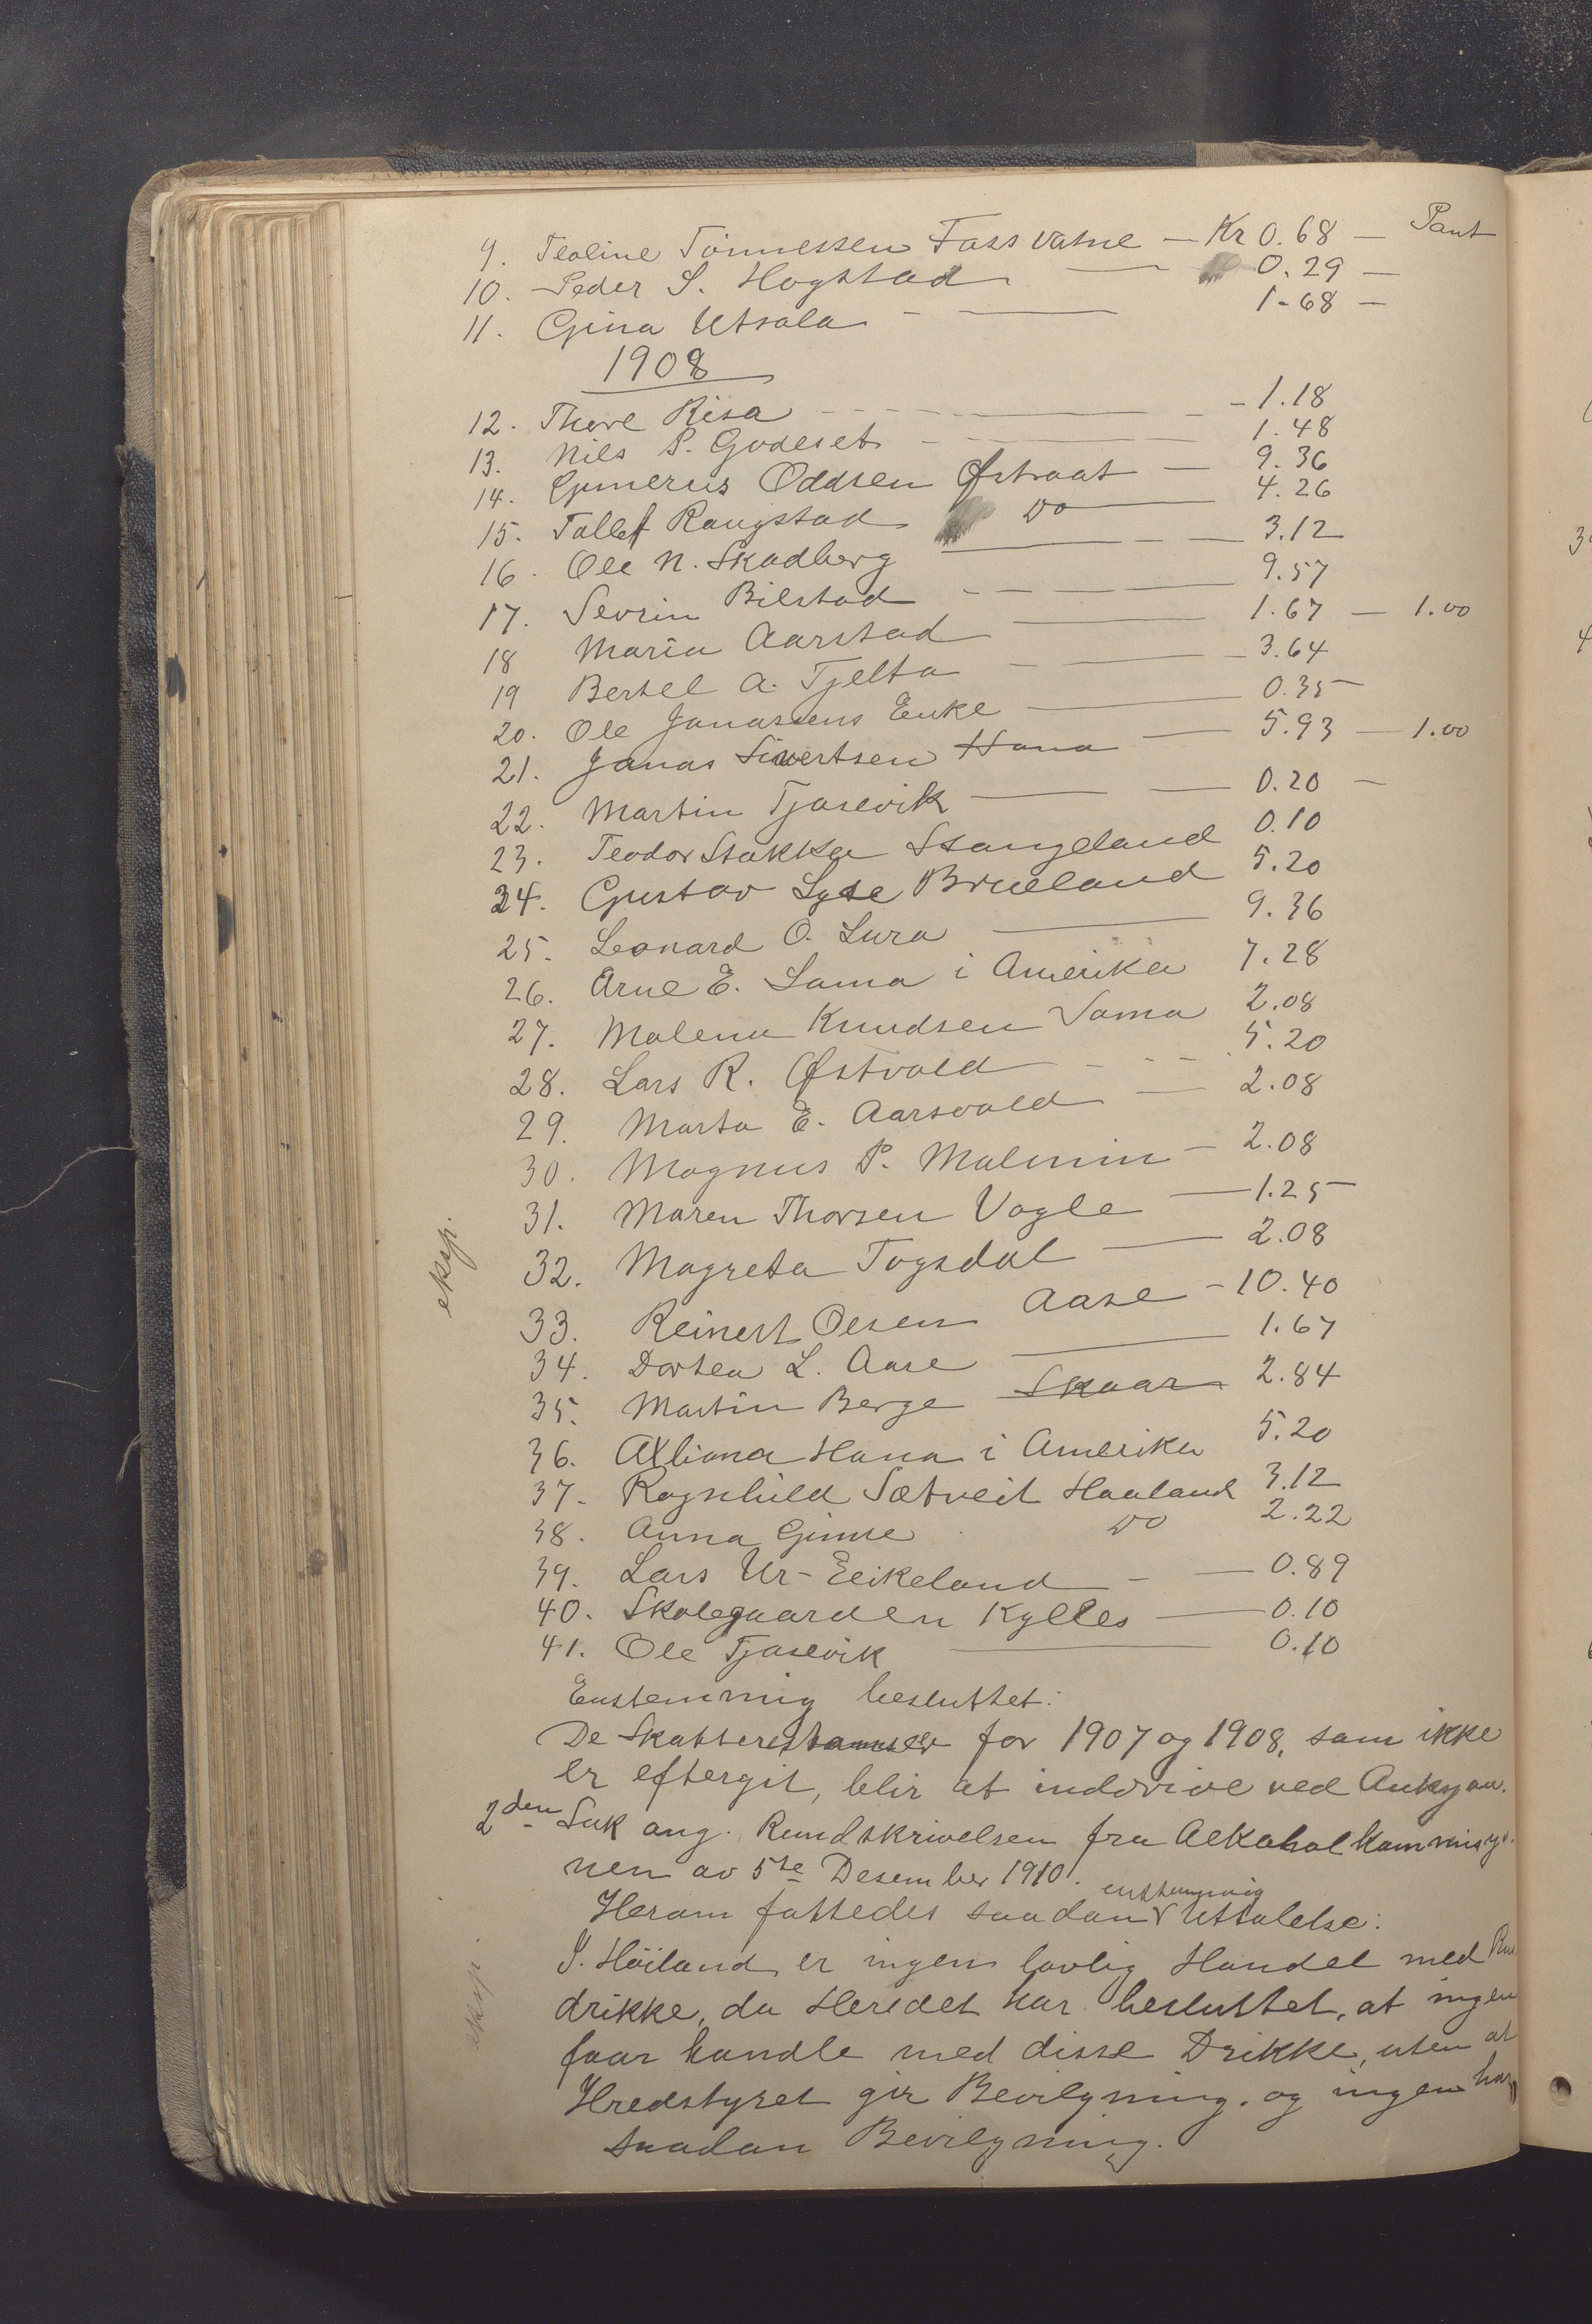 9. Teoline Tönnessen Fossvatne — Kr 0.68 — Pant
10. Peder S. Hogstad — 0.29 —
11. Gina Utsola — 1-68 —
1908
12. Thore Risa — 1.18
13. Nils P. Godeset — 1.48
14. Gunerius Oddsen Østraat — 9.36
15. Tollef Rangstad Do — 4.26
16. Ole N. Skadberg — 3.12
17. Sevrin Bilstad — 9.57
18 Maria Aarstad — 1.67 — 1.00
19 Bertel A. Tjelta — 3.64
20. Ole Jonassens Enke — 0.35
21. Jonas Sivertsen Hana — 5.93 — 1.00
22. Martin Tjaasevik — 0.20 —
23. Teodor Stokka Stangeland 0.10
24. Gustav Lyse Brueland 5.20
25. Leonard O. Lura — 9.36
26. Arne E. Soma i Amerika 7.28
27. Malena Knudsen Soma 2.08
28. Lars R. Østvold - - 5.20
29. Marta E. Aarsvold — 2.08
30. Magnus P. Malmin — 2.08
31. Maren Thorsen Vagle — 1.25
32. Magreta Togsdal — 2.08
eksp.
33. Reinert Olsen Aase - 10.40
34. Dortea L. Aase — 1.67
35. Martin Berge Skaar 2.84
36. Albiona Hana i Amerika 5.20
37. Ragnhild Sætveit Haaland 3.12
38. Anna Gimre Do 2.22
39. Lars Ur-Eeikeland - — 0.89
40. Skolegaarden Kylles — 0.10
41. Ole Tjasevik — 0.10
Enstemmig besluttet:
De Skatterestanser for 1907 og 1908, som ikke
er eftergit, blir at inddrive ved
2den Sak ang. Rundskrivelsen fra Alkoholkommisjo-
nen av 5te Desember 1910.
Herom fattedes saadan enstemmig Uttalelse:
I Höiland er ingen lovlig Handel med
drikke, da Heredet har besluttet, at ingen
eksp.
faar handle med disse Drikke, uten at
Hredstyret gir Bevilgning. og ingen har
saadan Bevilgning.